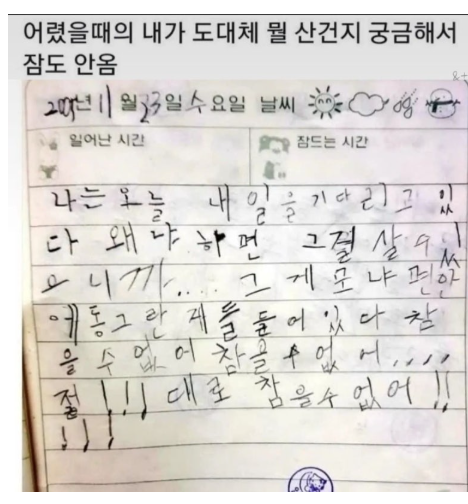 어렸을때의 내가 도대체 뭘 산건지 궁금해서
잠도 안옴
2005년 11월 23일 수요일 날씨
일어난 시간
잠드는 시간
나는 오늘 내일을 기다리고 있
다 왜냐하면 그걸 살 수 있
으니까.... 그게 모냐면 안
에 동그란 게 들들어있다 참
을 수 없어 참을 수 없어....
절!!! 대로 참을수 없어!!
!!!